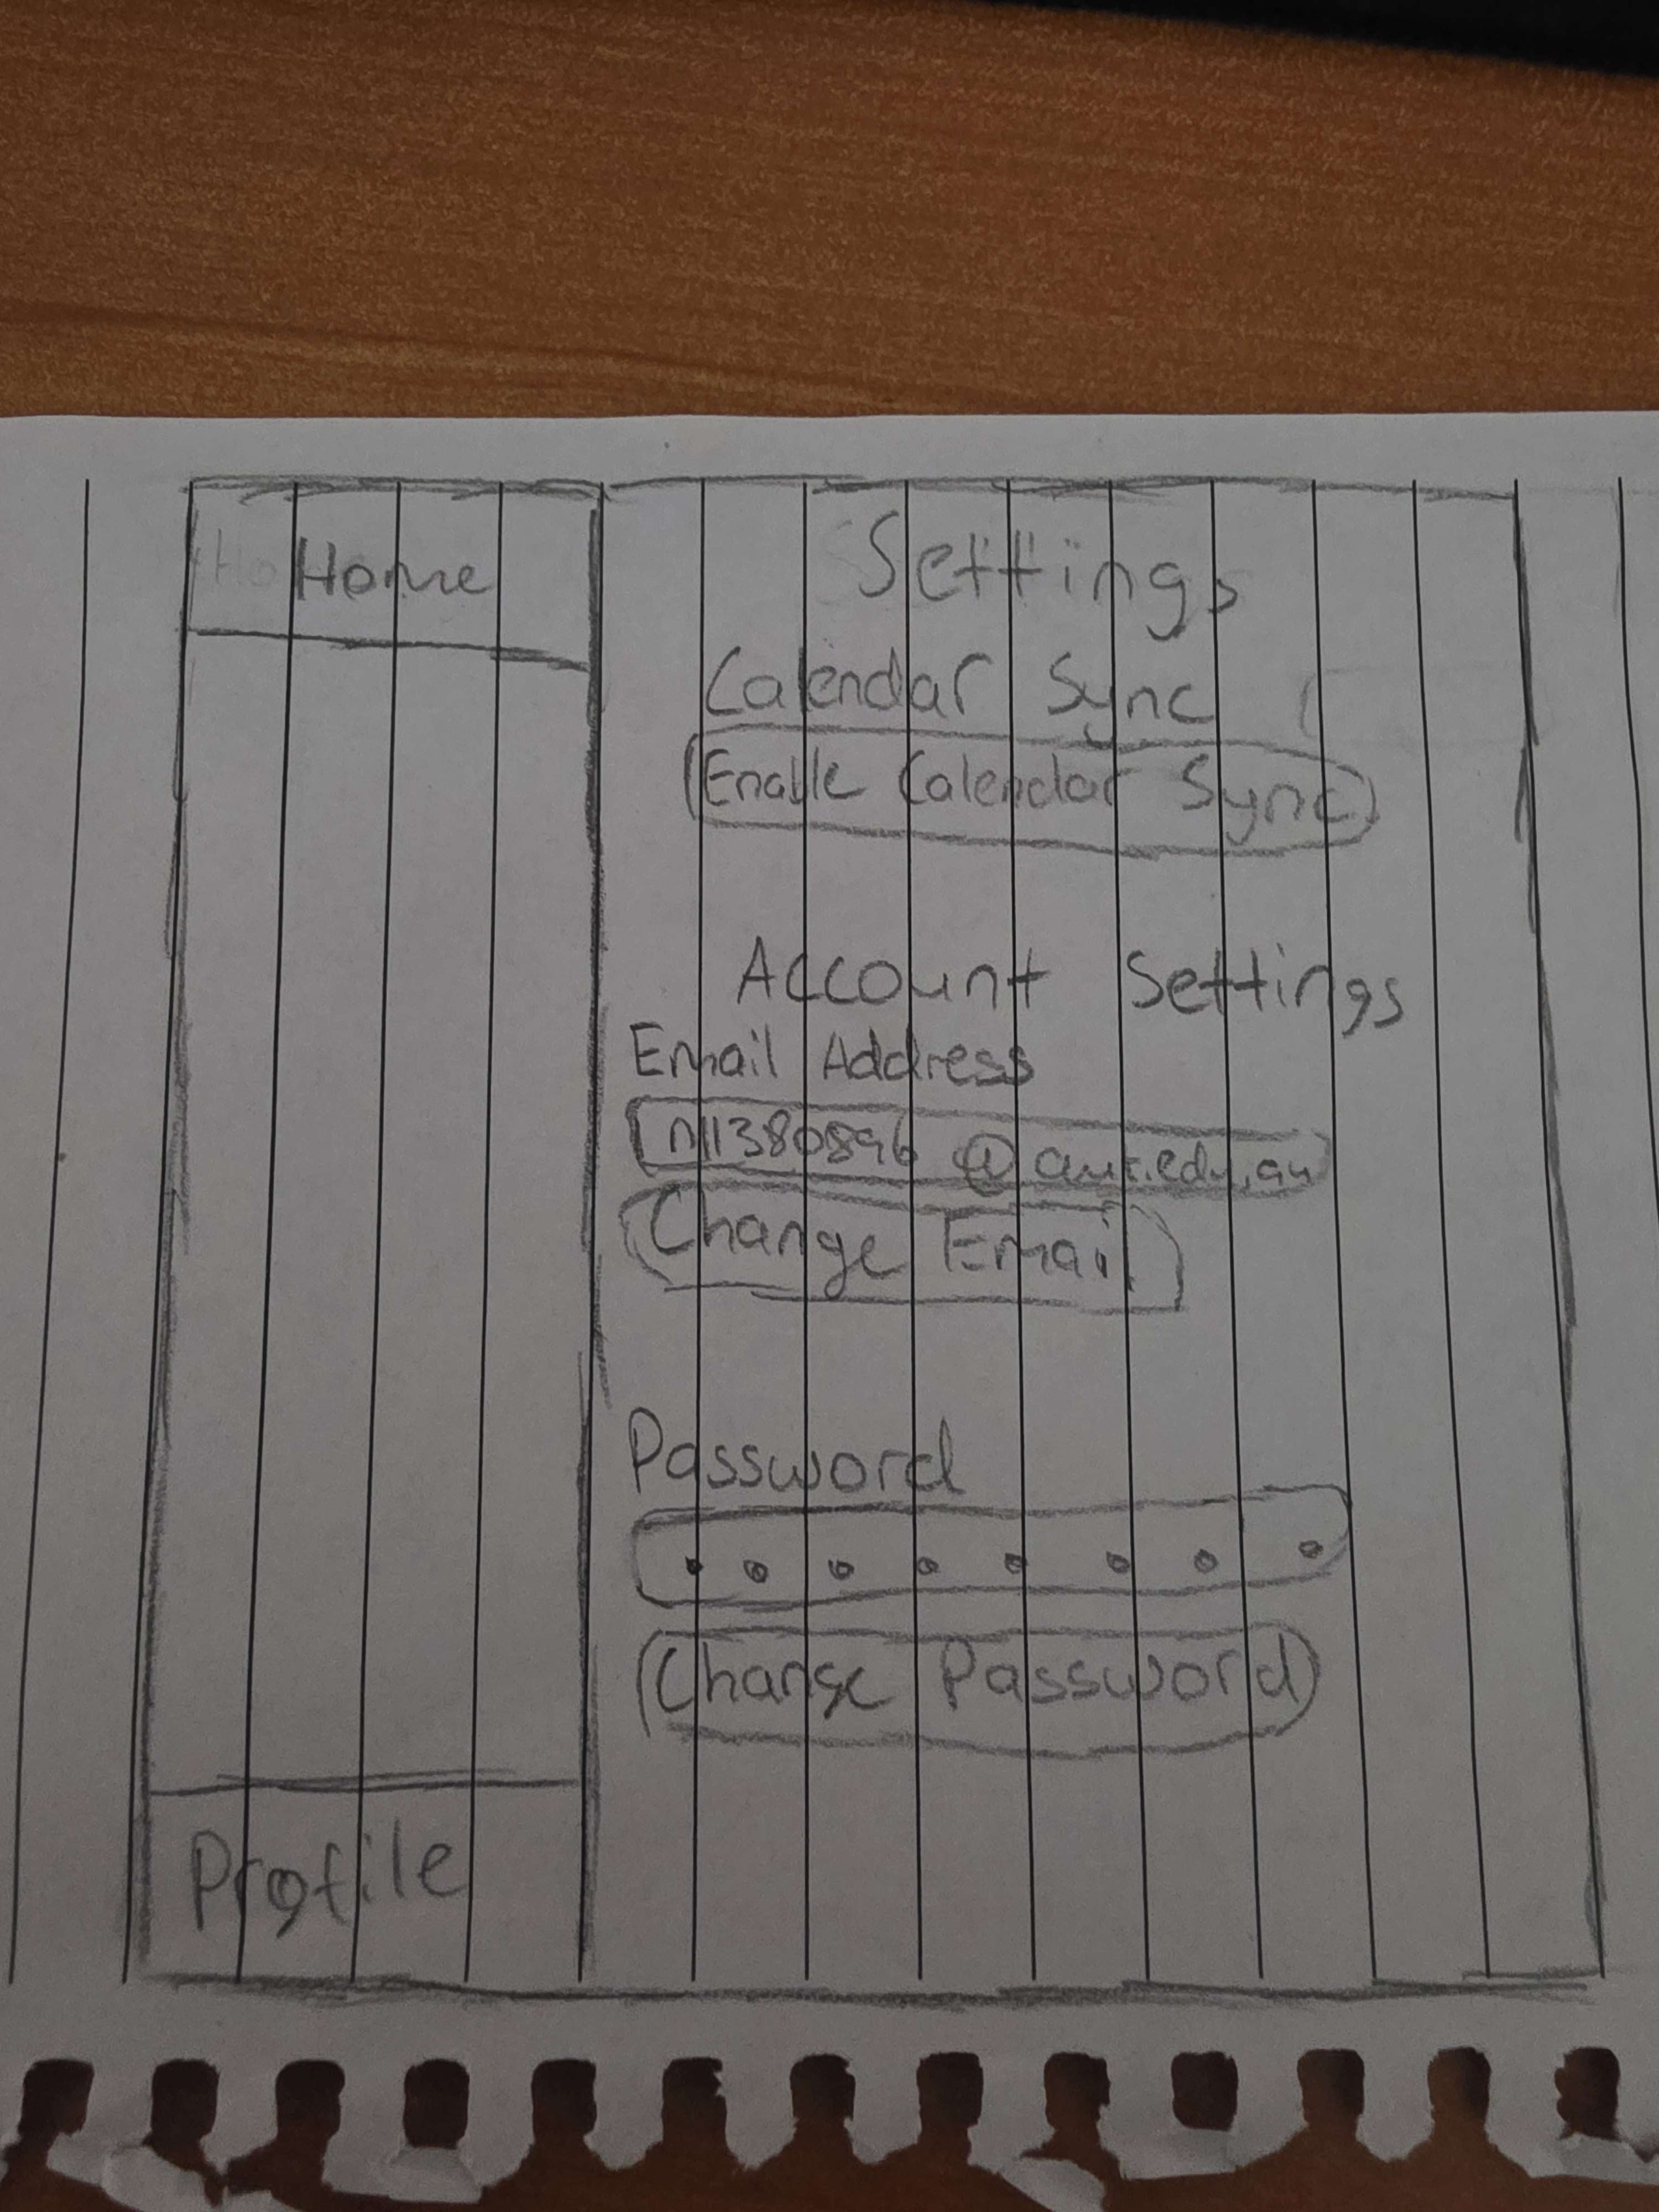 Home
Settings
Calendar Sync
Enable Calendar Sync
Account Settings
Email Address
n11380896
Change Email
Password
Change Password
Profile